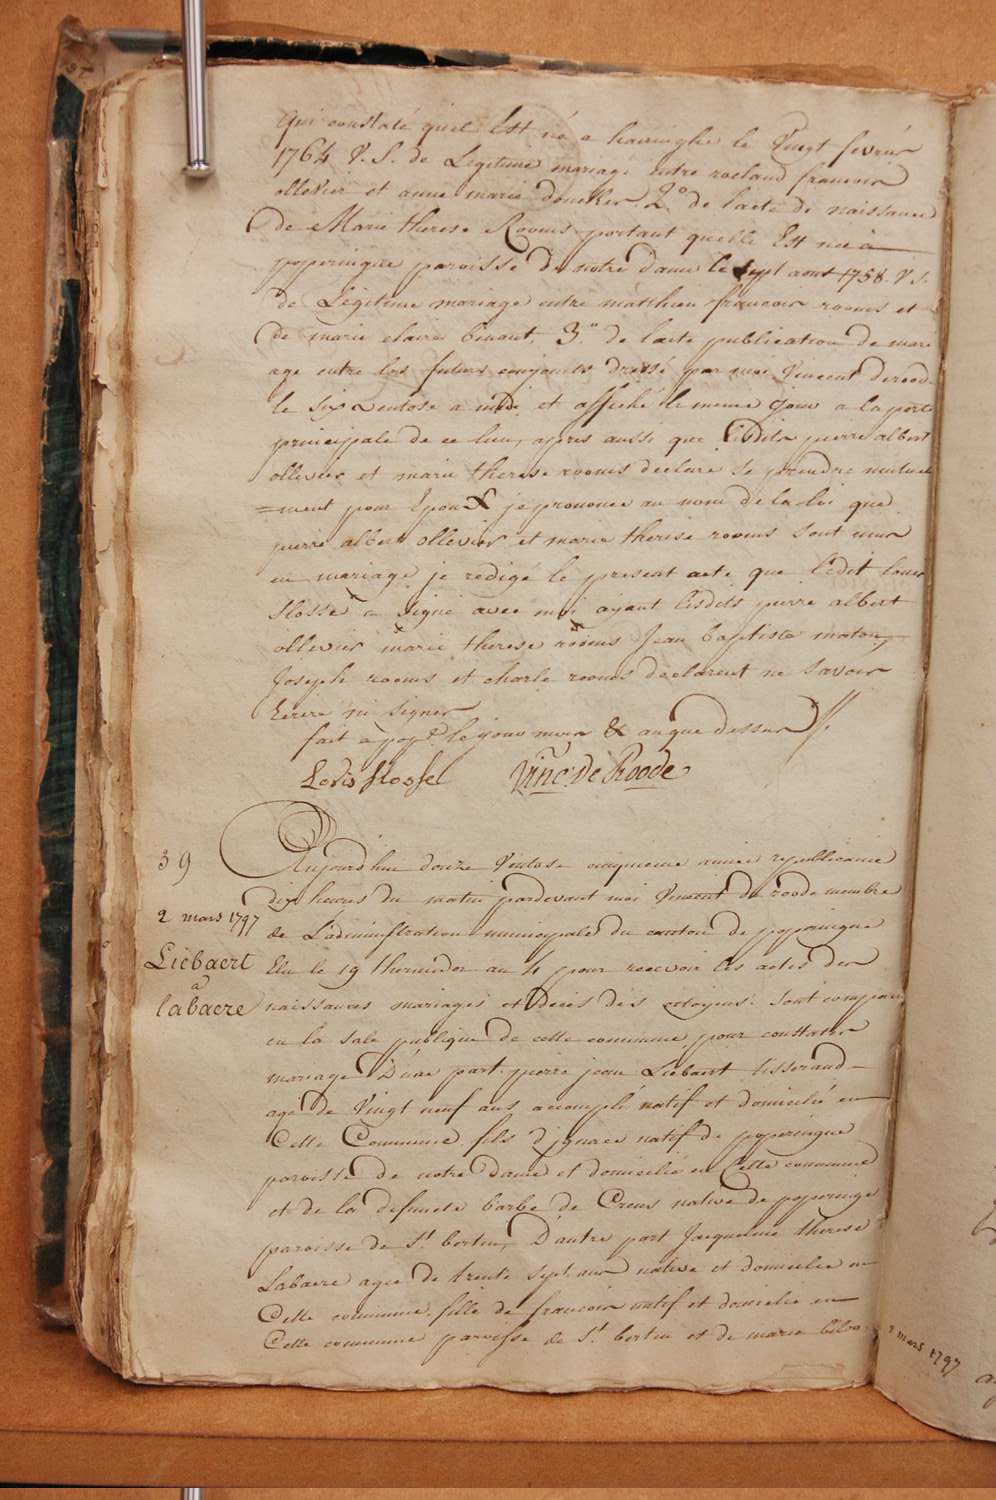 qui constate quil Est né a haringhe le Vingt fevrier
1764 V. S. de Legitime mariage Entre roeland francois
ollevier et anne marie doncker 2.° de lacte de naissance
de Marie therese Rooms portant quelle Est née à
poperingue paroisse de notre dame le sept aout 1758. V S.
de Légitime mariage entre matthieu francois rooms et
de marie claire 3.° de lacte publication de mari
age entre les futurs conjoints dressé par moi Vincent deroode
le six ventose a midi et affiché le meme jour a la porte
principale de ce lieu, apres aussi que lesdits pierre albert
ollevier et marie therese rooms declaré se prendre mutuel
=ment pour Epoux je prononce au nom de la loi que
pierre albert ollevier et marie therese rooms sont unis
en mariage je redigé le present acte que ledit Louis
flossel a signé avec moi ayant lesdits pierre albert
ollevier marie therese rooms Jean baptiste maton,
Joseph rooms et charle rooms declarent ne savoir
Ecrire ni signer
fait a pop.e le jour mois & an que dessus
Louis flossel Vinc: De Roode
39
Aujourdhui douze Ventose cinquieme année republicaine
dix heures du matin pardevant moi Vincent de roode membre
2 mars 1797
de L'administration municipale du canton de poperingue
Liebaert
Elu le 19 thermidor an 4 pour recevoir les actes des
a
labaere
naissances mariages et Décès des citoyens: sont comparu
en la sale publique de cette commune pour constater
mariage D'une part pierre jean Liebaert tisserand
agé de Vingt neuf ans accompli natif et domicilié en
Cette Commune fils d'ignace natif de poperingue
paroisse de notre dame et domicilié en Cette commune
et de la defuncte barbe de Creus native de poperinge
paroisse de S.t bertin, D'autre part Jacqueline therese
Labaere agée de trente sept ans native et domiciliée en
Cette commune fille de francois natif et domicilié en
Cette commune paroisse de S.t bertin et de marie
2 mars 1797